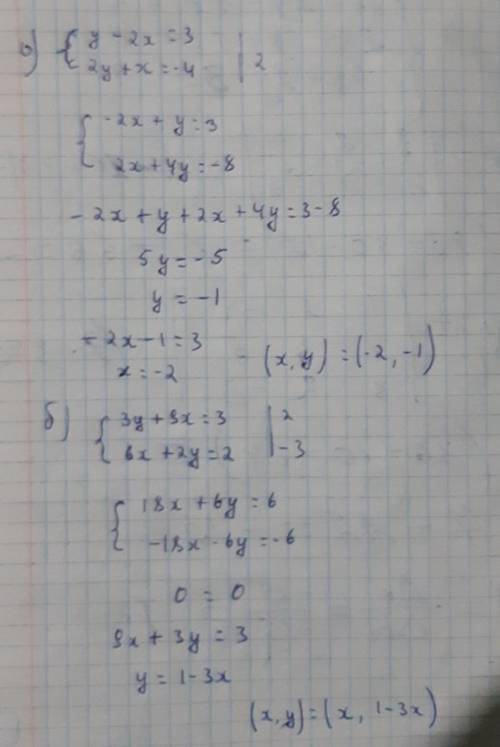 а) { y - 2x = 3
2y + x = -4 | 2
{ -2x + y = 3
2x + 4y = -8
- 2x + y + 2x + 4y = 3 - 8
5y = -5
y = -1
- 2x - 1 = 3
x = -2 - (x, y) = (-2, -1)
б) { 3y + 9x = 3 | 2
6x + 2y = 2 | -3
{ 18x + 6y = 6
-18x - 6y = -6
0 = 0
9x + 3y = 3
y = 1 - 3x
(x, y) = (x, 1 - 3x)